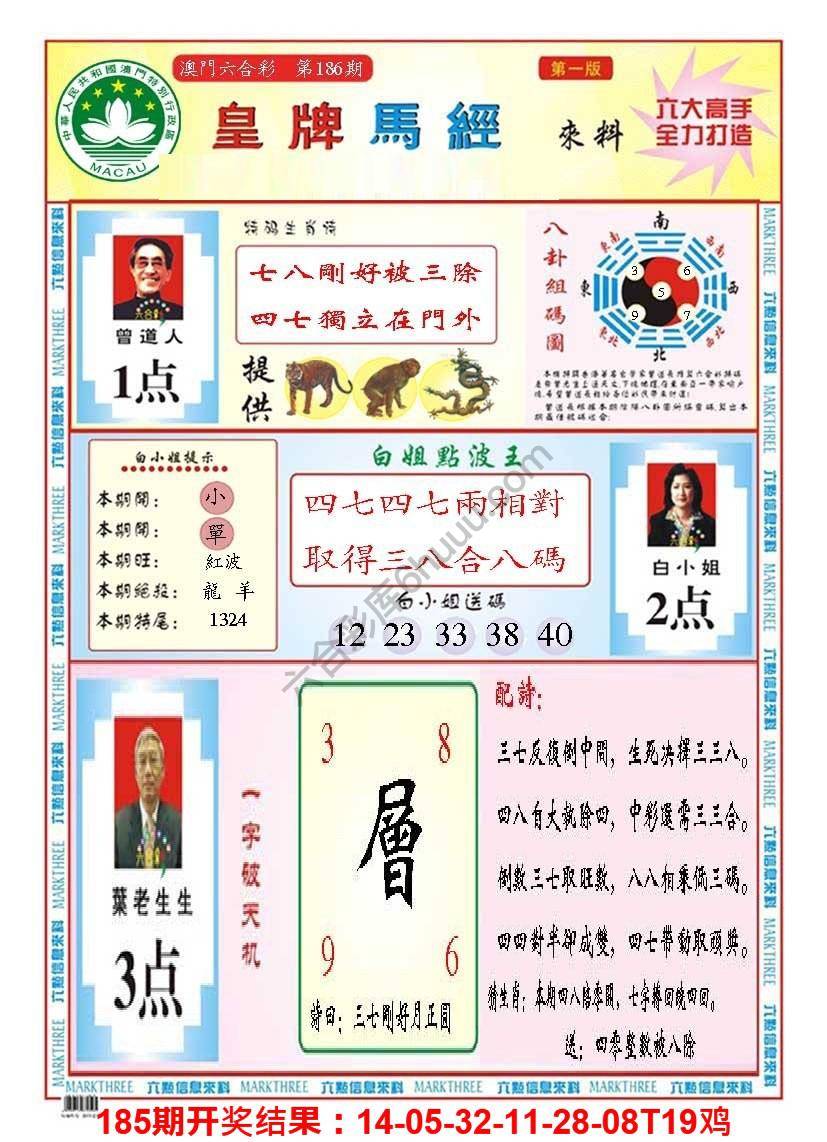 澳門六合彩 第186期
第一版
中華人民共和國澳門特別行政區
MACAU
皇牌馬經
來料
六大高手
全力打造
曾道人
1点
特碼生肖詩
七八剛好被三除
四七獨立在門外
提供
八卦組碼圖
南
東南
西南
東
西
東北
西北
北
3 6
5
9 7
白小姐提示
本期開: 小
本期開: 單
本期旺: 紅波
本期絕殺: 龍 羊
本期特尾: 1324
白姐點波王
四七四七兩相對
取得三八合八碼
白小姐送碼
12 23 33 38 40
白小姐
2点
葉老生生
3点
一字破天机
3 8
層
9 6
詩曰: 三七剛好月正圓
配詩:
三七反復倒中間, 生死決擇三三八。
四八自大執除四, 中彩還需三三合。
倒數三七取旺數, 八八相乘低三碼。
四四對半卻成雙, 四七帶動取頭獎。
猜生肖: 本期四八陪零開, 七字轉回繞四回。
送: 四零整數被八除
MARKTHREE 六點信息來料 MARKTHREE 六點信息來料 MARKTHREE 六點信息來料 MARKTHREE 六點信息來料
六合彩库6huuu.com
185期开奖结果：14-05-32-11-28-08T19鸡